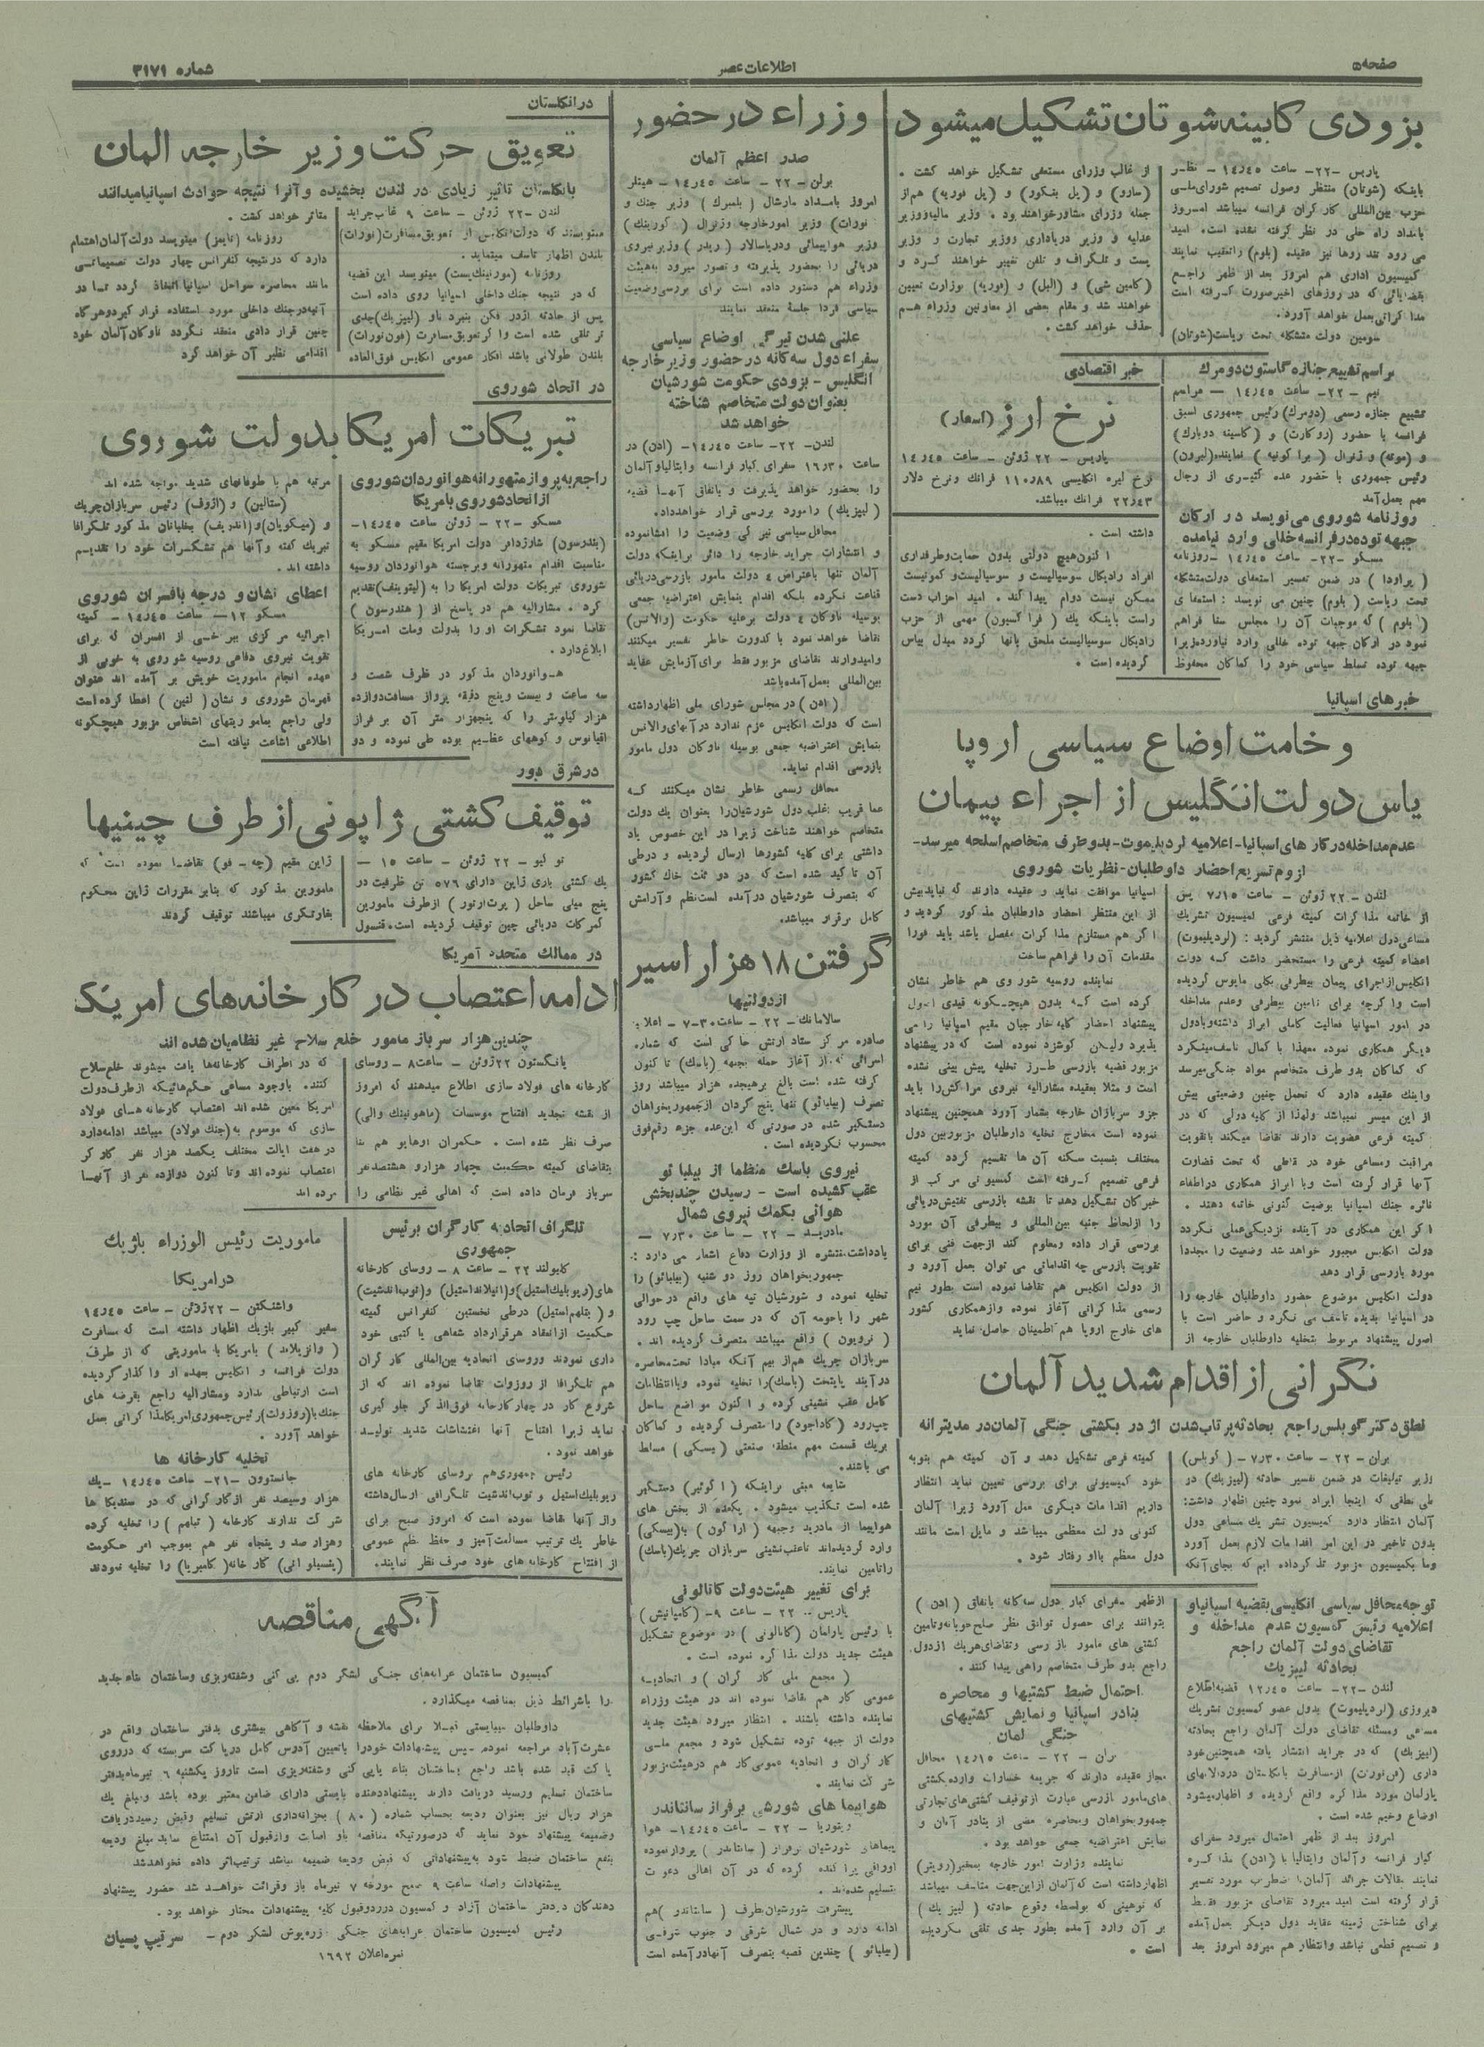 صفحه ۵
اطلاعات عصر
شماره ۳۱۷۱
بزودی کابینه شوتان تشکیل میشود
پاریس -۲۲- ساعت ۱۴ر۴۵ - نظر
باینکه (شوتان) منتظر وصول تصمیم شورای ملی
حزب بین‌المللی کارگران فرانسه میباشد امروز
بامداد راه حلی در نظر گرفته نشده است. امید
می رود تندروها نیز عقیده (بلوم) را تعقیب نمایند
کمیسیون اداری هم امروز بعد از ظهر راجع
در روزهای اخیر صورت گرفته است
مذاکراتی بعمل خواهد آورد.
سومین دولت متشکله تحت ریاست (شوتان)
از غالب وزرای مستعفی تشکیل خواهد گشت.
(سارو) و (پل بنکور) و (پل فوریه) هم از
جمله وزرای مشاور خواهند بود. وزیر مالیه و وزیر
عدلیه و وزیر دریاداری و وزیر تجارت و وزیر
پست و تلگراف و تلفن تغییر خواهند کرد و
خواهند شد و مقام بعضی از معاونین وزراء هم
حذف خواهد گشت.
مراسم تشییع جنازه گاستون دومرک
نیم -۲۲- ساعت ۱۴ر۴۵ - مراسم
تشییع جنازه رسمی (دومرک) رئیس جمهوری اسبق
فرانسه با حضور
رئیس جمهوری با حضور عده کثیری از رجال
مهم بعمل آمد
روزنامه شوروی می‌نویسد در ارکان
جبهه توده در فرانسه خللی وارد نیامده
مسکو -۲۲- ساعت ۱۴ر۴۵ - روزنامه
(پراودا) در ضمن تفسیر استعفای دولت متشکله
تحت ریاست (بلوم) چنین می نویسد : استعفای
(بلوم) که موجبات آن را مجلس سنا فراهم
نمود در ارکان جبهه توده خللی وارد نیاورد زیرا
جبهه توده تسلط سیاسی خود را کماکان محفوظ
خبر اقتصادی
نرخ ارز (اسعار)
پاریس - ۲۲ ژوئن - ساعت ۱۴ر۴۵
نرخ لیره انگلیسی ۱۱۰ر۸۹ فرانک و نرخ دلار
۲۲ر۴۳ فرانک میباشد.
داشته است.
اکنون هیچ دولتی بدون حمایت و طرفداری
افراد رادیکال سوسیالیست و سوسیالیست و کمونیست
ممکن نیست دوام پیدا کند. امید احزاب دست
راست باینکه یک (فراکسیون) مهمی از حزب
رادیکال سوسیالیست ملحق بآنها گردد مبدل بیاس
گردیده است.
خبرهای اسپانیا
وخامت اوضاع سیاسی اروپا
یاس دولت انگلیس از اجراء پیمان
عدم مداخله در کارهای اسپانیا-اعلامیه لرد پلیموت-بدو طرف متخاصم اسلحه میرسد-
لزوم تسریع احضار داوطلبان-نظریات شوروی
لندن -۲۲ ژوئن- ساعت ۷ر۱۵ پس
از خاتمه مذاکرات کمیته فرعی کمیسیون تشریک
مساعی دول اعلامیه ذیل منتشر گردید : (لرد پلیموت)
اعضاء کمیته فرعی را مستحضر داشت که دولت
انگلیس از اجرای پیمان بیطرفی بکلی مایوس گردیده
است و اگرچه برای تامین بیطرفی و عدم مداخله
در امور اسپانیا فعالیت کاملی ابراز داشته و با دول
دیگر همکاری نموده معهذا با کمال تاسف مینگرد
که کماکان بدو طرف متخاصم مواد جنگی میرسد
و اینک عقیده دارد که تحمل چنین وضعیتی بیش
از این میسر نمیباشد ولهذا از کلیه دولی که در
کمیته فرعی عضویت دارند تقاضا میکند با تقویت
مراقبت و مساعی خود در نقاطی که تحت قضاوت
آنها قرار گرفته است و با ابراز همکاری در اطفاء
نائره جنگ اسپانیا بوضعیت کنونی خاتمه دهند.
اگر این همکاری در آینده نزدیکی عملی نگردد
دولت انگلیس مجبور خواهد شد وضعیت را مجددا
مورد بازرسی قرار دهد
دولت انگلیس موضوع حضور داوطلبان خارجه را
در اسپانیا بدیده تاسف می نگرد و حاضر است با
اصول پیشنهاد مربوط بتخلیه داوطلبان خارجه از
اسپانیا موافقت نماید و عقیده دارد که نباید بیش
از این منتظر احضار داوطلبان مذکور گردید و
اگر هم مستلزم مذاکرات مفصل باشد باید فورا
مقدمات آن را فراهم ساخت
نماینده روسیه شوروی هم خاطر نشان
کرده است که بدون هیچگونه قیدی اصول
پیشنهاد احضار کلیه خارجیان مقیم اسپانیا را می
پذیرد ولیکن گوشزد نموده است که در پیشنهاد
مزبور قضیه بازرسی طرز تخلیه پیش بینی نشده
است و مثلا بعقیده مشارالیه نیروی مراکش را باید
جزو سربازان خارجه بشمار آورد همچنین پیشنهاد
نموده است مخارج تخلیه داوطلبان مزبور بین دول
مختلف بنسبت سکنه آن ها تقسیم گردد کمیته
فرعی تصمیم گرفته است کمسیونی مرکب از
خبرگان تشکیل دهد تا نقشه بازرسی تفتیش دریائی
را از لحاظ جنبه بین‌المللی و بیطرفی آن مورد
بررسی قرار داده و معلوم کند از جهت فنی برای
تقویت بازرسی چه اقداماتی می توان بعمل آورد و
از دولت انگلیس هم تقاضا نموده است بطور نیم
رسمی مذاکراتی آغاز نموده و از همکاری کشور
های خارج اروپا هم اطمینان حاصل نماید
نگرانی از اقدام شدید آلمان
نطق دکتر گوبلس راجع بحادثه پرتاب شدن اژدر بکشتی جنگی آلمان در مدیترانه
برلن -۲۲- ساعت ۷ر۳۰ - (گوبلس)
وزیر تبلیغات در ضمن تفسیر حادثه (لیپزیک) در
طی نطقی که اینجا ایراد نمود چنین اظهار داشت:
آلمان انتظار دارد کمیسیون تشریک مساعی دول
بدون تاخیر در این امر اقدامات لازم بعمل آورد
وما بکمیسیون مزبور تذکر داده ایم که بجای آنکه
کمیته فرعی تشکیل دهد و آن کمیته هم بنوبه
خود کمیسیونی برای بررسی تعیین نماید انتظار
داریم اقدامات دیگری بعمل آورد زیرا آلمان
کنونی دولت معظمی میباشد و مایل است مانند
دول معظم با او رفتار شود.
توجه محافل سیاسی انگلیسی بقضیه اسپانیا و
اعلامیه رئیس کمسیون عدم مداخله و
تقاضای دولت آلمان راجع
بحادثه لیپزیک
لندن -۲۲- ساعت ۱۲ر۴۵ قضیه اطلاع
دیروزی (لرد پلیموت) بدول عضو کمسیون تشریک
مساعی و مسئله تقاضای دولت آلمان راجع بحادثه
(لیپزیک) که در جراید انتشار یافته همچنین خود
داری (فن نورت) از مسافرت بانگلستان در دالانهای
پارلمان مورد مذاکره واقع گردیده و اظهار میشود
اوضاع وخیم شده است.
امروز بعد از ظهر احتمال میرود سفرای
کبار فرانسه و آلمان و ایتالیا با (ادن) مذاکره
نمایند مقالات جرائد آلمان با اضطراب مورد تفسیر
قرار گرفته است امید میرود تقاضای مزبور فقط
برای شناختن زمینه عقاید دول دیگر بعمل آمده
و تصمیم قطعی نباشد و انتظار هم میرود امروز بعد
از ظهر سفرای کبار دول سه گانه باتفاق (ادن)
بتوانند برای حصول توافق نظر صلح جویانه و تامین
کشتی های مامور بازرسی و تقاضای هریک از دول
راجع بدو طرف متخاصم راهی پیدا کنند.
احتمال ضبط کشتیها و محاصره
بنادر اسپانیا و نمایش کشتیهای
جنگی آلمان
برلن - ۲۲ - ساعت ۱۴ر۱۵ محافل
مجاز عقیده دارند که جریمه خسارات وارده بکشتی
های مامور بازرسی عبارت از توقیف کشتی های تجارتی
جمهوریخواهان و محاصره بعضی از بنادر آنان و
نمایش اعتراضیه جمعی خواهد بود.
نماینده وزارت امور خارجه بمخبر (رویتر)
اظهار داشته است که آلمان از این جهت متاسف میباشد
که توهینی که بواسطه وقوع حادثه (لیپزیک)
بر آن وارد آمده بطور جدی تلقی نگردیده
است.
وزراء در حضور
صدر اعظم آلمان
برلن -۲۲- ساعت ۱۴ر۴۵ - هیتلر
امروز بامداد مارشال (بلمبرگ) وزیر جنگ و
نورات) وزیر امور خارجه و ژنرال (گورینک)
وزیر هواپیمائی و دریاسالار (ریدر) وزیر نیروی
دریائی را بحضور پذیرفته و تصور میرود به هیئت
وزراء هم دستور داده است برای بررسی وضعیت
سیاسی فردا جلسه منعقد نمایند
علنی شدن تیرگی اوضاع سیاسی
سفراء دول سه گانه در حضور وزیر خارجه
انگلیس - بزودی حکومت شورشیان
بعنوان دولت متخاصم شناخته
خواهد شد
لندن -۲۲- ساعت ۱۴ر۴۵ - (ادن) در
ساعت ۱۶ر۳۰ سفرای کبار فرانسه و ایتالیا و آلمان
را بحضور خواهد پذیرفت و باتفاق آنها قضیه
(لیپزیک) را مورد بررسی قرار خواهد داد.
محافل سیاسی تیرگی وضعیت را افشا نموده
و انتشارات جراید خارجه را دائر براینکه دولت
آلمان تنها باعتراض ۴ دولت مامور بازرسی دریائی
قناعت نکرده بلکه اقدام بنمایش اعتراضیه جمعی
بوسیله ناوگان ۴ دولت برعلیه حکومت (والانس)
تقاضا خواهد نمود با کدورت خاطر تفسیر میکنند
و امیدوارند تقاضای مزبور فقط برای آزمایش عقاید
بین‌المللی بعمل آمده باشد
(ادن) در مجلس شورای ملی اظهار داشته
است که دولت انگلیس عزم ندارد در آبهای والانس
بنمایش اعتراضیه جمعی بوسیله ناوگان دول مامور
بازرسی اقدام نماید.
محافل رسمی خاطر نشان میکنند که
عما قریب اغلب دول شورشیان را بعنوان یک دولت
متخاصم خواهند شناخت زیرا در این خصوص یاد
داشتی برای کلیه کشورها ارسال گردیده و در طی
آن تاکید شده است که در دو ثلث خاک کشور
که بتصرف شورشیان در آمده است نظم و آرامش
کامل برقرار میباشد.
گرفتن ۱۸ هزار اسیر
از دولتیها
سالامانک - ۲۲ - ساعت ۷-۳۰ - اعلامیه
صادره مرکز ستاد ارتش حاکی است که شماره
اسرائی که از آغاز حمله بجبهه (باسک) تاکنون
گرفته شده است بالغ بر هیجده هزار میباشد روز
تصرف (بیلبائو) تنها پنج گردان از جمهوریخواهان
دستگیر شده در صورتی که این عده جزء رقم فوق
محسوب نگردیده است.
نیروی باسک منظما از بیلبائو
عقب کشیده است - رسیدن چند بخش
هوائی بکمک نیروی شمال
مادرید - ۲۲ - ساعت ۷ر۳۰ -
یادداشت منتشره از وزارت دفاع اشعار می دارد :
جمهوریخواهان روز دوشنبه (بیلبائو) را
تخلیه نموده و شورشیان تپه های واقع در حوالی
شهر را باحومه آن که در سمت ساحل چپ رود
(نرویون) واقع میباشد متصرف گردیده اند.
سربازان چریک هم از بیم آنکه مبادا تحت محاصره
در آیند پایتخت (باسک) را تخلیه نموده و با انتظامات
کامل عقب نشینی کرده و اکنون مواضع ساحل
چپ رود (کاداجود) را متصرف گردیده و کماکان
بریک قسمت مهم منطقه صنعتی (بسکی) مسلط
می باشند.
شایعه مبنی براینکه (اگوئیر) دستگیر
شده است تکذیب میشود. یکعده از بخش های
هواپیما از مادرید و جبهه (اراگون) به (بیسکی)
وارد گردیده‌اند تا عقب نشینی سربازان چریک (باسک)
را تامین نمایند.
برای تغییر هیئت دولت کاتالونی
پاریس - ۲۲ - ساعت ۹ - (کامپانیش)
با رئیس پارلمان (کاتالونی) در موضوع تشکیل
هیئت جدید دولت مذاکره نموده است.
(مجمع ملی کارگران) و اتحادیه
عمومی کار هم تقاضا نموده اند در هیئت وزراء
نماینده داشته باشند. انتظار میرود هیئت جدید
دولت از جبهه توده تشکیل شود و مجمع ملی
کارگران و اتحادیه عمومی کار هم در هیئت مزبور
شرکت نمایند.
هواپیماهای شورشی برفراز سانتاندر
ویتوریا - ۲۲ - ساعت ۱۴ر۴۵ - هوا
پیماهای شورشیان برفراز (سانتاندر) پرواز نموده
اوراقی پراکنده کرده که در آن اهالی دعوت
تسلیم شده‌اند.
پیشرفت شورشیان بطرف (سانتاندر) هم
ادامه دارد و در شمال شرقی و جنوب شرقی
(بیلبائو) چندین قصبه بتصرف آنها در آمده است
در انگلستان
تعویق حرکت وزیر خارجه المان
بانگلستان تاثیر زیادی در لندن بخشیده و آنرا نتیجه حوادث اسپانیا میدانند
لندن -۲۲ ژوئن - ساعت ۹ غالب جراید
مینویسند که دولت انگلیس از تعویق مسافرت (نورات)
بلندن اظهار تاسف مینماید.
روزنامه (مورنینک پست) مینویسد این قضیه
که در نتیجه جنگ داخلی اسپانیا روی داده است
پس از حادثه اژدر فکن بنبرد ناو (لیپزیک) جدی
تر تلقی شده است و اگر تعویق مسافرت (فون نورات)
بلندن طولانی باشد افکار عمومی انگلیس فوق‌العاده
متاثر خواهد گشت.
روزنامه (تایمز) مینویسد دولت آلمان اهتمام
دارد که در نتیجه کنفرانس چهار دولت تصمیماتی
مانند محاصره سواحل اسپانیا اتخاذ گردد تا در
آتیه در جنگ داخلی مورد استفاده قرار گیرد و هرگاه
چنین قراردادی منعقد نگردد ناوگان آلمان خود
اقدامی نظیر آن خواهد کرد
در اتحاد شوروی
تبریکات امریکا بدولت شوروی
راجع به پرواز متهورانه هوانوردان شوروی
از اتحاد شوروی بامریکا
مسکو -۲۲ - ژوئن ساعت ۱۴ر۴۵-
(هندرسون) شارژدافر دولت امریکا مقیم مسکو به
مناسبت اقدام متهورانه و برجسته هوانوردان روسیه
شوروی تبریکات دولت امریکا را به (لیتوینف) تقدیم
کرد. مشارالیه هم در پاسخ از (هندرسون)
تقاضا نمود تشکرات او را بدولت و ملت امریکا
ابلاغ دارد.
هوانوردان مذکور در ظرف شصت و
سه ساعت و بیست و پنج دقیقه پرواز مسافت دوازده
هزار کیلومتر را که پنجهزار متر آن بر فراز
اقیانوس و کوههای عظیم بوده طی نموده و دو
مرتبه هم با طوفانهای شدید مواجه شده اند
(ستالین) و (اژوف) رئیس سربازان چریک
و (میکویان) و (اندریف) بخلبانان مذکور تلگرافا
تبریک گفته و آنها هم تشکرات خود را تقدیم
داشته اند.
اعطای نشان و درجه بافسران شوروی
مسکو ۱۲- ساعت ۱۴ر۴۵ - کمیته
اجرائیه مرکزی ببرخی از افسران که برای
تقویت نیروی دفاعی روسیه شوروی به خوبی از
عهده انجام ماموریت خویش برآمده اند عنوان
قهرمان شوروی و نشان (لنین) اعطا کرده است
ولی راجع بماموریتهای اشخاص مزبور هیچگونه
اطلاعی اشاعت نیافته است
در شرق دور
توقیف کشتی ژاپونی از طرف چینیها
توکیو - ۲۲ ژوئن - ساعت ۱۵ -
یک کشتی باری ژاپن دارای ۵۷۶ تن ظرفیت در
پنج میلی ساحل (پرت ارتور) از طرف مامورین
گمرکات دریائی چین توقیف گردیده است. قنسول
ژاپن مقیم (چه - فو) تقاضا نموده است که
مامورین مذکور که بنابر مقررات ژاپن محکوم
بغارتگری میباشند توقیف گردند
در ممالک متحده آمریکا
ادامه اعتصاب در کارخانه‌های امریک
چندین هزار سرباز مامور خلع سلاح غیر نظامیان شده اند
یانگستون ۲۲ ژوئن - ساعت ۸ - روسای
کارخانه های فولادسازی اطلاع میدهند که امروز
از نقشه تجدید افتتاح موسسات (ماهونینک والی)
صرف نظر شده است. حکمران اوهایو هم بنا
بتقاضای کمیته حکمیت چهار هزار و هشتصد نفر
سرباز فرمان داده است که اهالی غیر نظامی را
که در اطراف کارخانه‌ها یافت میشوند خلع سلاح
کنند. باوجود مساعی حکم‌هائیکه از طرف دولت
امریکا معین شده اند اعتصاب کارخانه‌های فولاد
سازی که موسوم به (جنگ فولاد) میباشد ادامه دارد
در هفت ایالت مختلف یکصد هزار نفر کارگر
اعتصاب نموده‌اند و تا کنون دوازده نفر از آنها
مرده اند
تلگراف اتحادیه کارگران برئیس
جمهوری
کلیولند ۲۲ - ساعت ۸ - روسای کارخانه
های (ریوبلیک استیل) و (اینلاند استیل) و (توب اندشیت)
و (بتلهم استیل) در طی نخستین کنفرانس کمیته
حکمیت از انعقاد هر قرارداد شفاهی یا کتبی خود
داری نمودند و روسای اتحادیه بین‌المللی کارگران
هم تلگرافا از روزولت تقاضا نموده اند که از
شروع کار در چهار کارخانه فوق‌الذکر جلوگیری
نماید زیرا افتتاح آنها اغتشاشات شدید تولید
خواهد نمود.
رئیس جمهوری هم بروسای کارخانه های
ریوبلیک استیل و توب اندشیت تلگرافی ارسال داشته
و از آنها تقاضا نموده است که امروز صبح برای
خاطر یک ترتیب مسالمت آمیز و حفظ نظم عمومی
از افتتاح کارخانه‌های خود صرف نظر نمایند.
ماموریت رئیس الوزراء بلژیک
در امریکا
واشنگتن - ۲۲ ژوئن - ساعت ۱۴ر۴۵
سفیر کبیر بلژیک اظهار داشته است که مسافرت
(وانزیلاند) بامریکا با ماموریتی که از طرف
دولت فرانسه و انگلیس بعهده او واگذار گردیده
است ارتباطی ندارد و مشارالیه راجع بقرضه های
جنگ با (روزولت) رئیس جمهوری امریکا مذاکراتی بعمل
خواهد آورد.
تخلیه کارخانه ها
جانستون -۲۱- ساعت ۱۴ر۴۵ - یک
هزار و سیصد نفر از کارگرانی که در سندیکا ها
شرکت ندارند کارخانه (تبلهم) را تخلیه کرده
و هزار صد و پنجاه نفر هم بموجب امر حکومت
(پنسیلوانی) کارخانه (کامبریا) را تخلیه نمودند
آگهی مناقصه
کمیسیون ساختمان عرابه‌های جنگی لشکر دوم پی کنی و شفته ریزی و ساختمان بناء جدید
را باشرائط ذیل بمناقصه میگذارد.
داوطلبان میبایستی قبلا برای ملاحظه نقشه و آگاهی بیشتری بدفتر ساختمان واقع در
عشرت آباد مراجعه نموده سپس پیشنهادات خود را باتعیین آدرس کامل در پاکت سربسته که در روی
پاکت قید شده باشد راجع بساختمان بناء پایی کنی و شفته ریزی است تا روز یکشنبه ۶ تیرماه بدفتر
ساختمان تسلیم و رسید دریافت دارند پیشنهاد دهنده بایستی دارای ضامن معتبر بوده باشد و مبلغ یک
هزار ریال نیز بعنوان ودیعه بحساب شماره (۸۰) بخزانه‌داری ارتش تسلیم و قبض رسید دریافت
وضمیمه پیشنهاد خود نماید که درصورتیکه مناقصه باو اصابت و از قبول آن امتناع نماید مبلغ ودیعه
بنفع ساختمان ضبط شود به پیشنهاداتی که قبض ودیعه ضمیمه نباشد ترتیب اثر داده نخواهد شد
پیشنهادات واصله ساعت ۹ صبح مورخه ۷ تیرماه باز و قرائت خواهد شد حضور پیشنهاد
دهندگان در دفتر ساختمان آزاد و کمسیون در رد و قبول کلیه پیشنهادات مختار خواهد بود.
رئیس کمیسیون ساختمان عرابه‌های جنگی زره‌پوش لشگر دوم - سرتیپ پسیان
نمره اعلان ۱۶۹۲